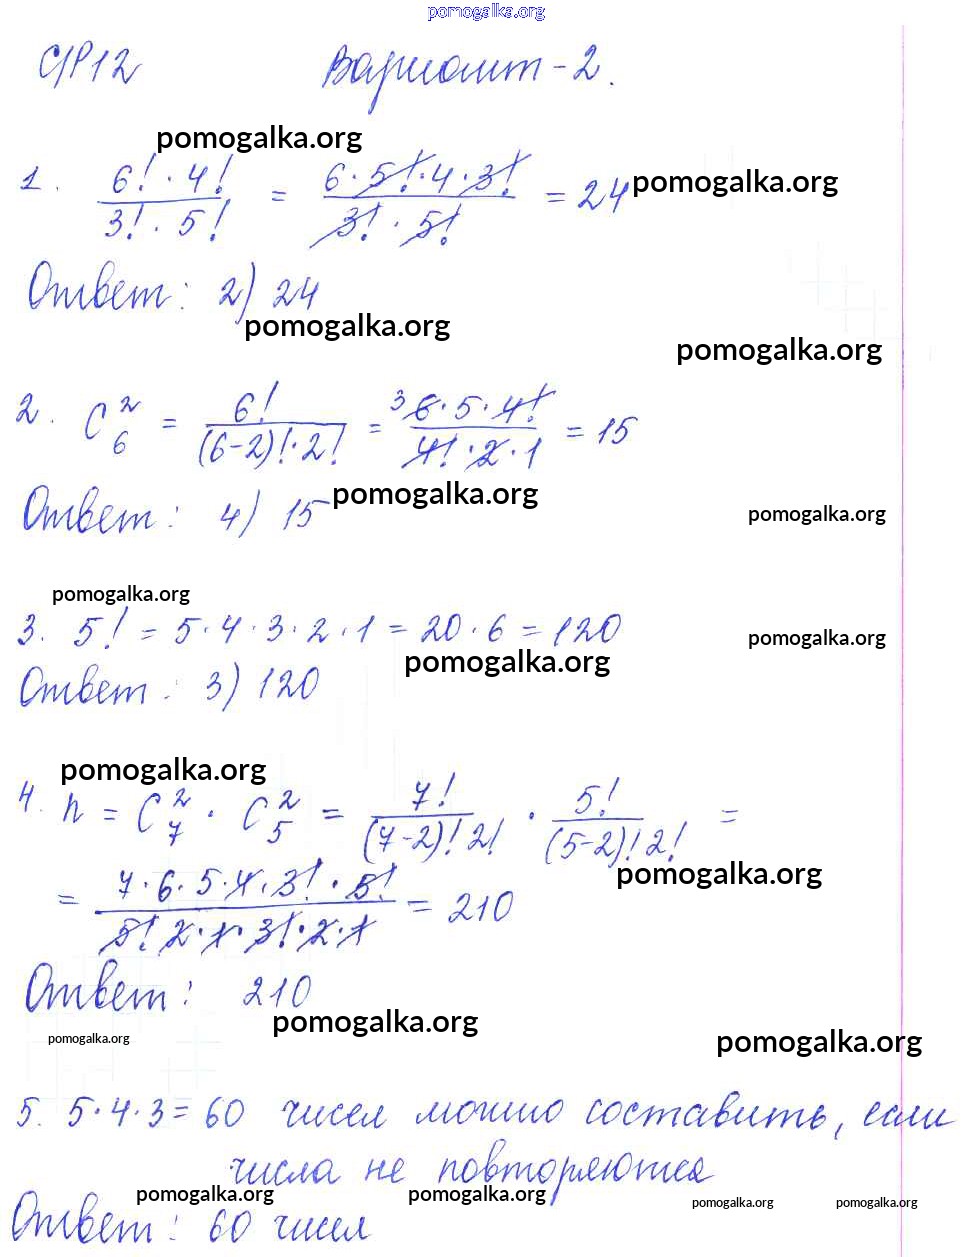 pomogalka.org
С/Р12 Вариант-2.
pomogalka.org
1. 6! · 4! / 3! · 5! = 6 · 5! · 4 · 3! / 3! · 5! = 24
pomogalka.org
Ответ: 2) 24
pomogalka.org
pomogalka.org
2. C₆² = 6! / (6-2)! · 2! = ³6 · 5 · 4! / 4! · 2 · 1 = 15
pomogalka.org
Ответ: 4) 15
pomogalka.org
pomogalka.org
3. 5! = 5 · 4 · 3 · 2 · 1 = 20 · 6 = 120
pomogalka.org
pomogalka.org
Ответ: 3) 120
pomogalka.org
4. n = C₇² · C₅² = 7! / (7-2)! 2! · 5! / (5-2)! 2! =
pomogalka.org
= 7 · 6 · 5 · 4 · 3! · 5! / 5! 2 · 1 · 3! · 2 · 1 = 210
Ответ: 210
pomogalka.org
pomogalka.org
pomogalka.org
5. 5 · 4 · 3 = 60 чисел можно составить, если
числа не повторяются
pomogalka.org
pomogalka.org
pomogalka.org
pomogalka.org
Ответ: 60 чисел